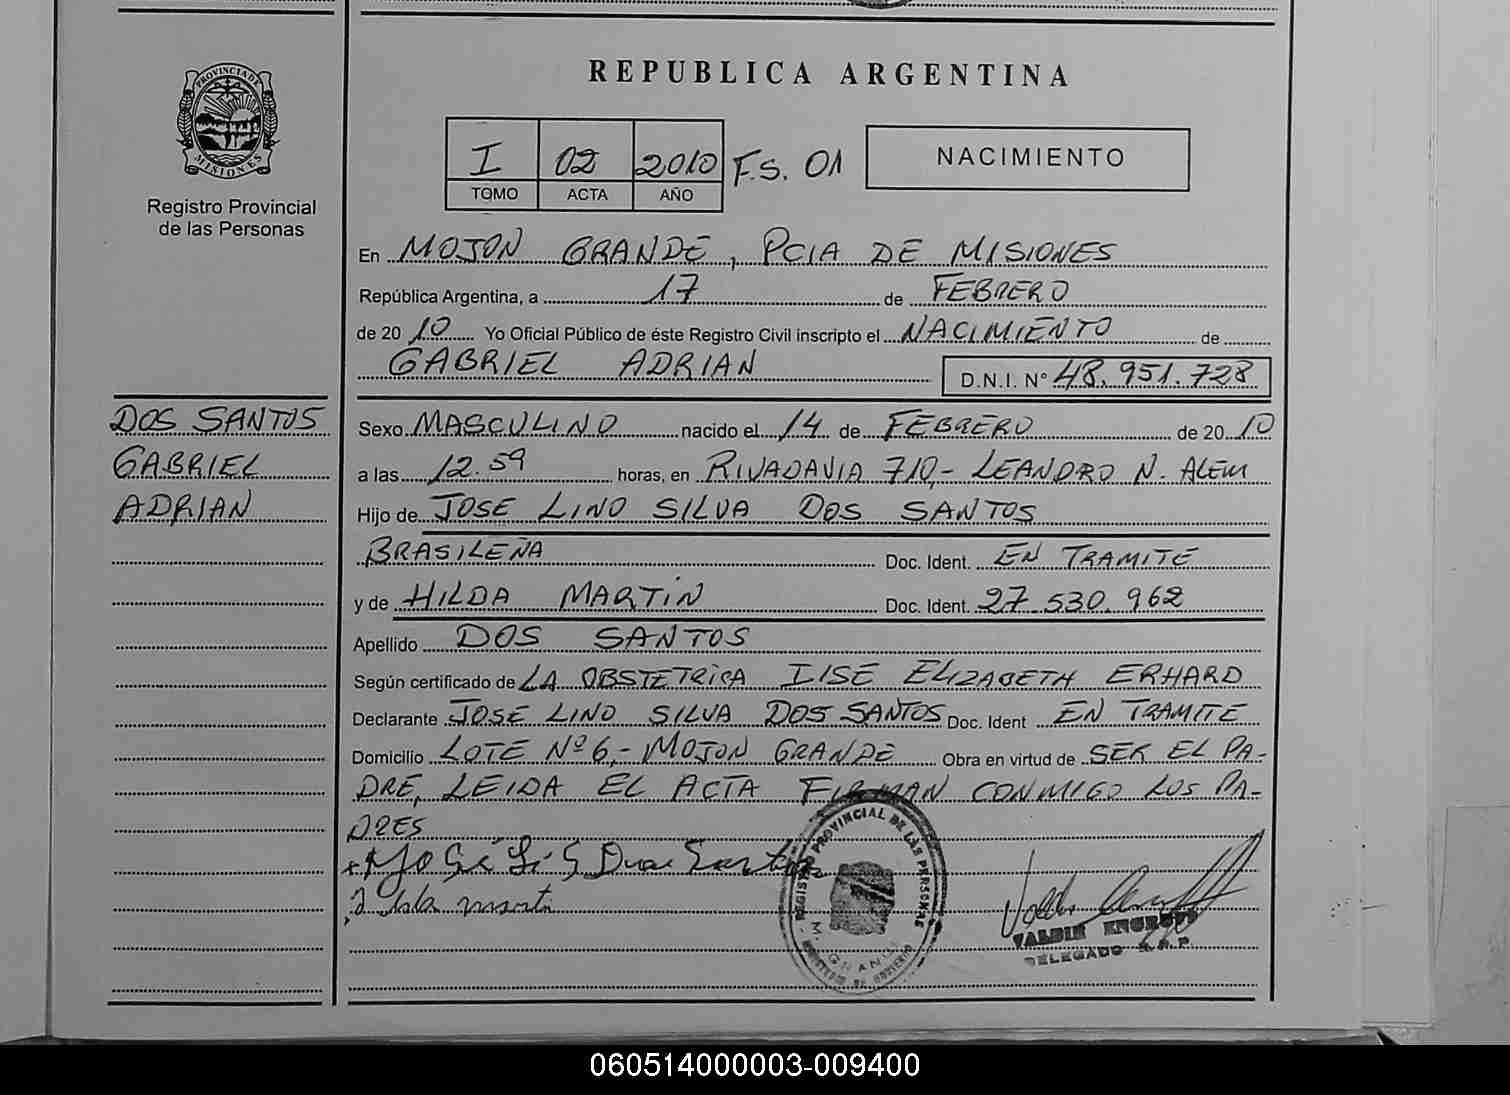 REPUBLICA ARGENTINA
PROVINCIA DE
MISIONES
Registro Provincial
de las Personas
I 02 2010 F.S. 01
TOMO ACTA AÑO
NACIMIENTO
En MOJON GRANDE, PCIA DE MISIONES
República Argentina, a 17 de FEBRERO
de 20 10 Yo Oficial Público de éste Registro Civil inscripto el NACIMIENTO de
GABRIEL ADRIAN D.N.I. Nº 48.951.728
DOS SANTOS
GABRIEL
ADRIAN
Sexo MASCULINO nacido el 14 de FEBRERO de 20 10
a las 12.59 horas, en RIVADAVIA 710,- LEANDRO N. ALEM
Hijo de JOSE LINO SILVA DOS SANTOS
BRASILEÑA Doc. Ident. EN TRAMITE
y de HILDA MARTIN Doc. Ident. 27 530. 962
Apellido DOS SANTOS
Según certificado de LA OBSTETRICA ILSE ELIZABETH ERHARD
Declarante JOSE LINO SILVA DOS SANTOS Doc. Ident EN TRAMITE
Domicilio LOTE Nº 6,- MOJON GRANDE Obra en virtud de SER EL PA-
DRE, LEIDA EL ACTA FIRMAN CONMIGO LOS PA-
DRES
REGISTRO PROVINCIAL DE LAS PERSONAS
M. GRANDE
MINISTERIO DE GOBIERNO
VALDIR
DELEGADO R.P.P.
060514000003-009400